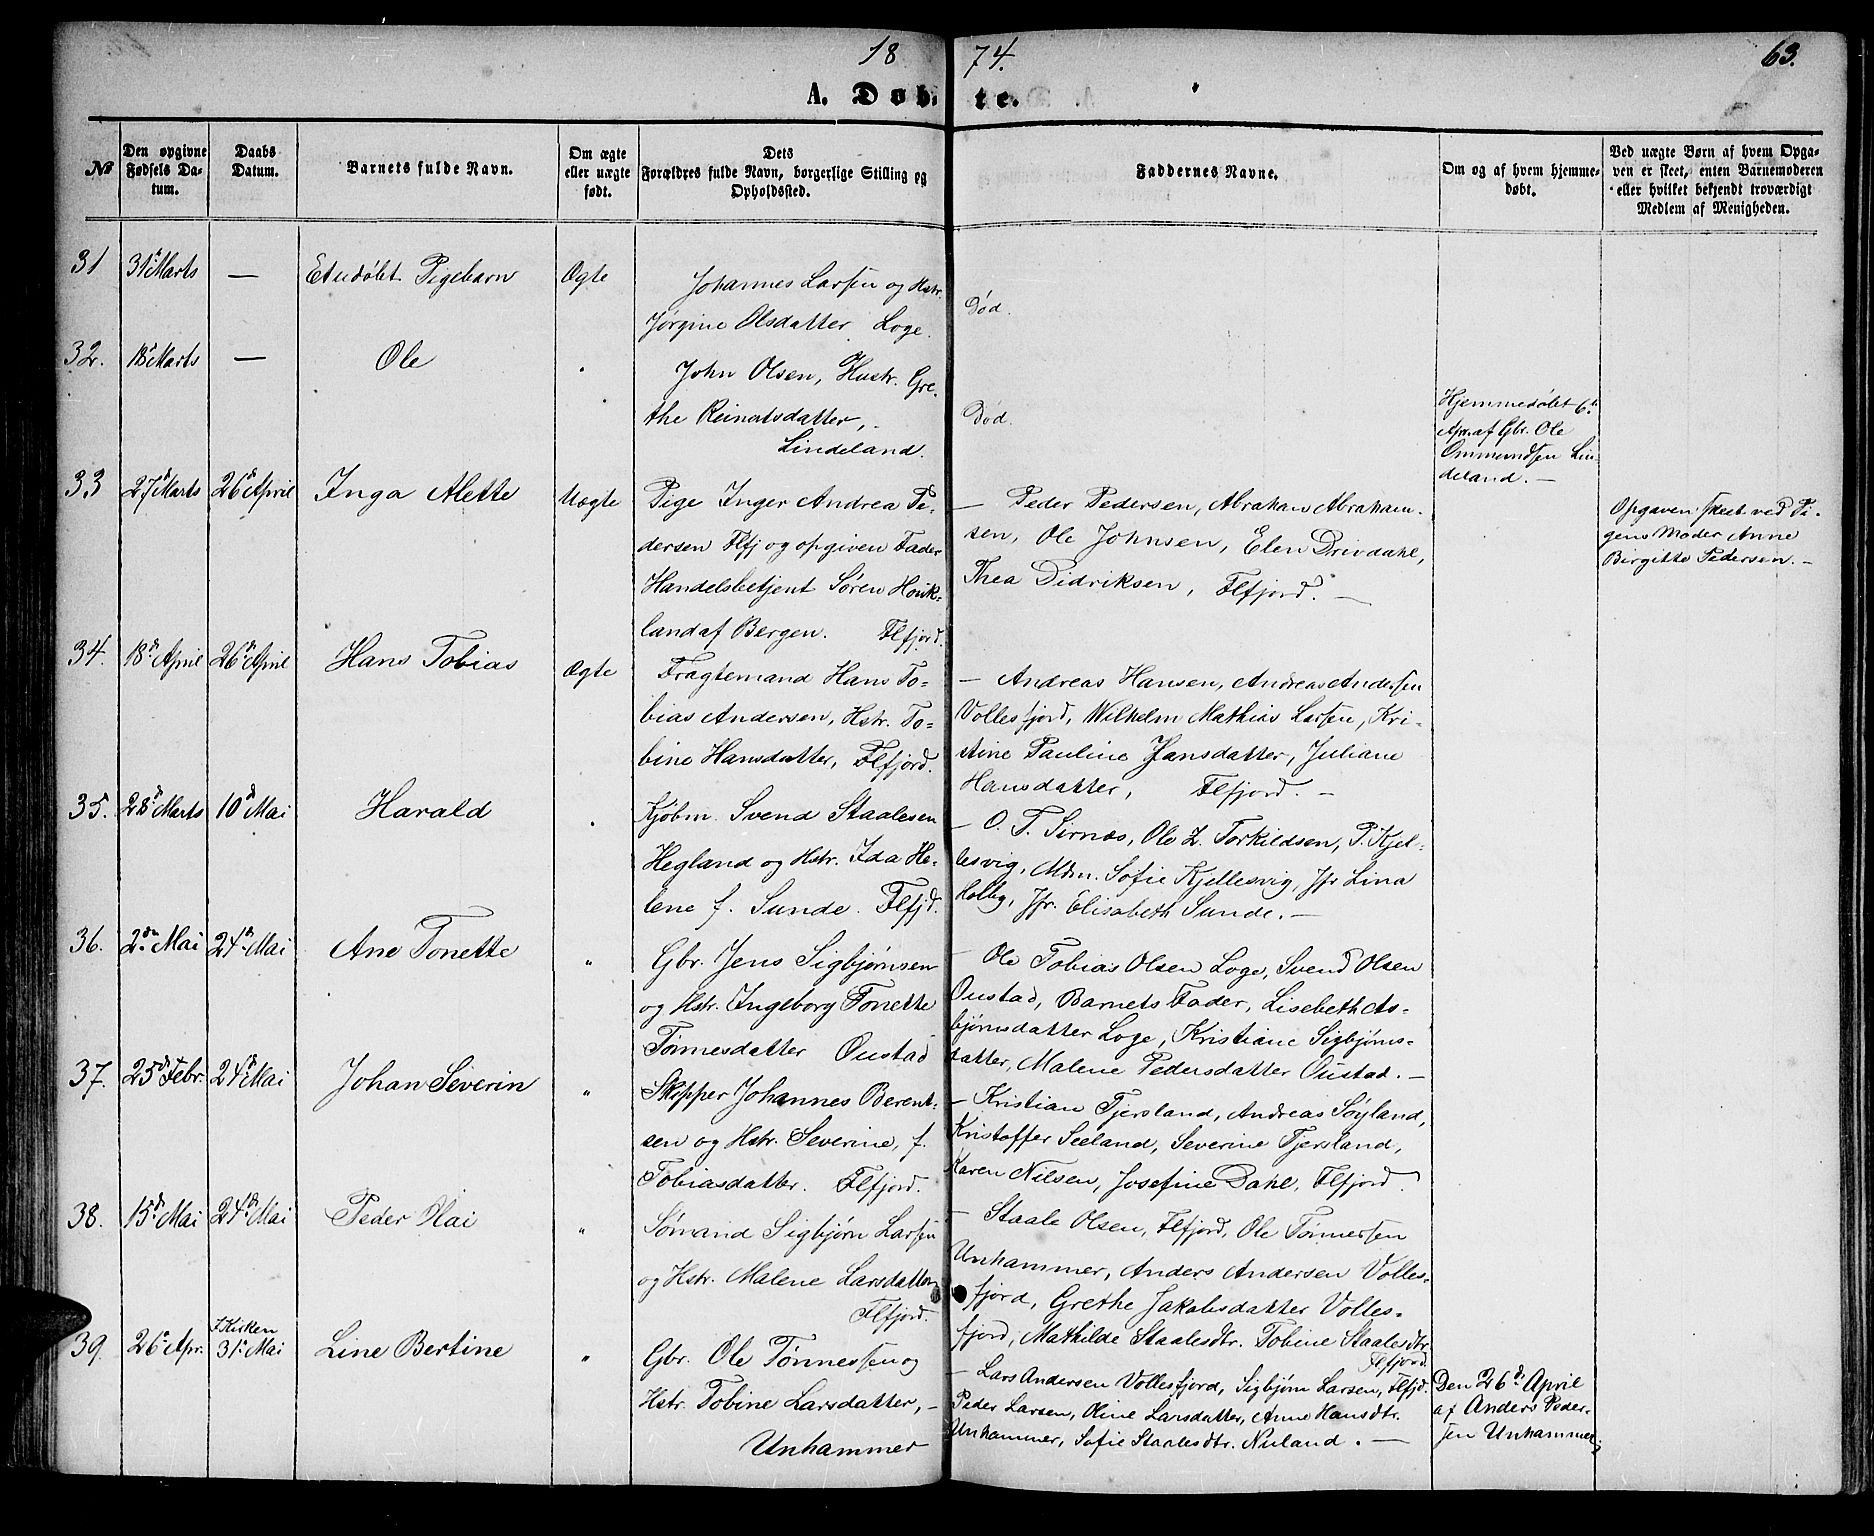 1874.
63.
A. Døbte.
No
Den opgivne Fødsels Datum.
Daabs Datum.
Barnets fulde Navn.
Om ægte eller uægte født.
Dets Forældres fulde Navn, borgerlige Stilling og Opholdssted.
Faddernes Navne.
Om og af hvem hjemmedøbt.
Ved uægte Børn af hvem Opgaven er skeet, enten Barnemoderen eller hvilket bekjendt troværdigt Medlem af Menigheden.
31 31te Marts — Et udøbt Pigebarn Ægte
Johannes Larsen og Hstr.
Jørgine Olsdatter Loge.
Død.
32. 18de Marts — Ole "
John Olsen, Hustr. Gre-
the Reinatsdatter,
Lindeland.
Død.
Hjemmedøbt 6te
Apr. af Gbr. Ole
Ommundsen Lin-
deland. —
33 27de Marts 26de April Inga Alette Uægte
Pige Inger Andrea Pe-
dersen Flfj og opgiven Fader
Handelsbetjent Søren Houk-
land af Bergen. Flfjord.
— Peder Pedersen, Abraham Abraham-
sen, Ole Johnsen, Elen Drivdahl,
Thea Didriksen, Flfjord. —
Opgaven skeet ved Pi-
gens Moder Anne
Birgitte Pedersen. —
34. 18de April 26de April Hans Tobias Ægte
Fragtemand Hans To-
bias Andersen, Hstr. To-
bine Hansdatter, Flfjord.
— Andreas Hansen, Andreas Andersen
Vollesfjord, Wilhelm Mathias Larsen, Kri-
stine Pauline Hansdatter, Juliane
Hansdatter, Flfjord. —
35. 28de Marts 10de Mai Harald "
Kjøbm. Svend Staalesen
Hegland og Hstr. Ida He-
lene f. Sunde. Flfjd.
— O. T. Sirnæs, Ole Z. Torkildsen, P. Kjel-
lesvig, Mdm. Sofie Kjellesvig, Jfr Lina
Holby, Jfr. Elisabeth Sunde. —
36. 2den Mai 24de Mai Ane Tonette "
Gbr. Jens Sigbjørnsen
og Hstr. Ingeborg Tonette
Tønnesdatter Oustad
— Ole Tobias Olsen Loge, Svend Olsen
Oustad, Barnets Fader, Lisebeth As-
bjørnsdatter Loge, Kristiane Sigbjørns-
datter, Malene Pedersdatter Oustad. —
37. 25de Febr. 24de Mai Johan Severin "
Skipper Johannes Berent-
sen og Hstr. Severine, f.
Tobiasdatter. Flfjord.
— Kristian Tjersland, Andreas Søyland,
Kristoffer Seeland, Severine Tjersland,
Karen Nilsen, Josefine Dahl, Flfjord.
38. 15de Mai 24de Mai Peder Olai "
Sømand Sigbjørn Larsen
og Hstr. Malene Larsdatter
Flfjord.
— Staale Olsen, Flfjord, Ole Tønnessen
Unhammer, Anders Andersen Volles-
fjord, Grethe Jakobsdatter Volles-
fjord, Mathilde Staalesdtr. Tobine Staalesdtr.
Flfjord.
39. 26de Apr. I Kirken 31te Mai Line Bertine "
Gbr. Ole Tønnessen og
Hstr. Tobine Larsdatter, —
Unhammer
— Lars Andersen Vollesfjord, Sigbjørn Larsen, Flfjd.
Peder Larsen, Oline Larsdatter, Anne Hansdtr.
Unhammer, Sofie Staalesdtr. Nuland. —
Den 26de April
af Anders Peder-
sen Unhammer